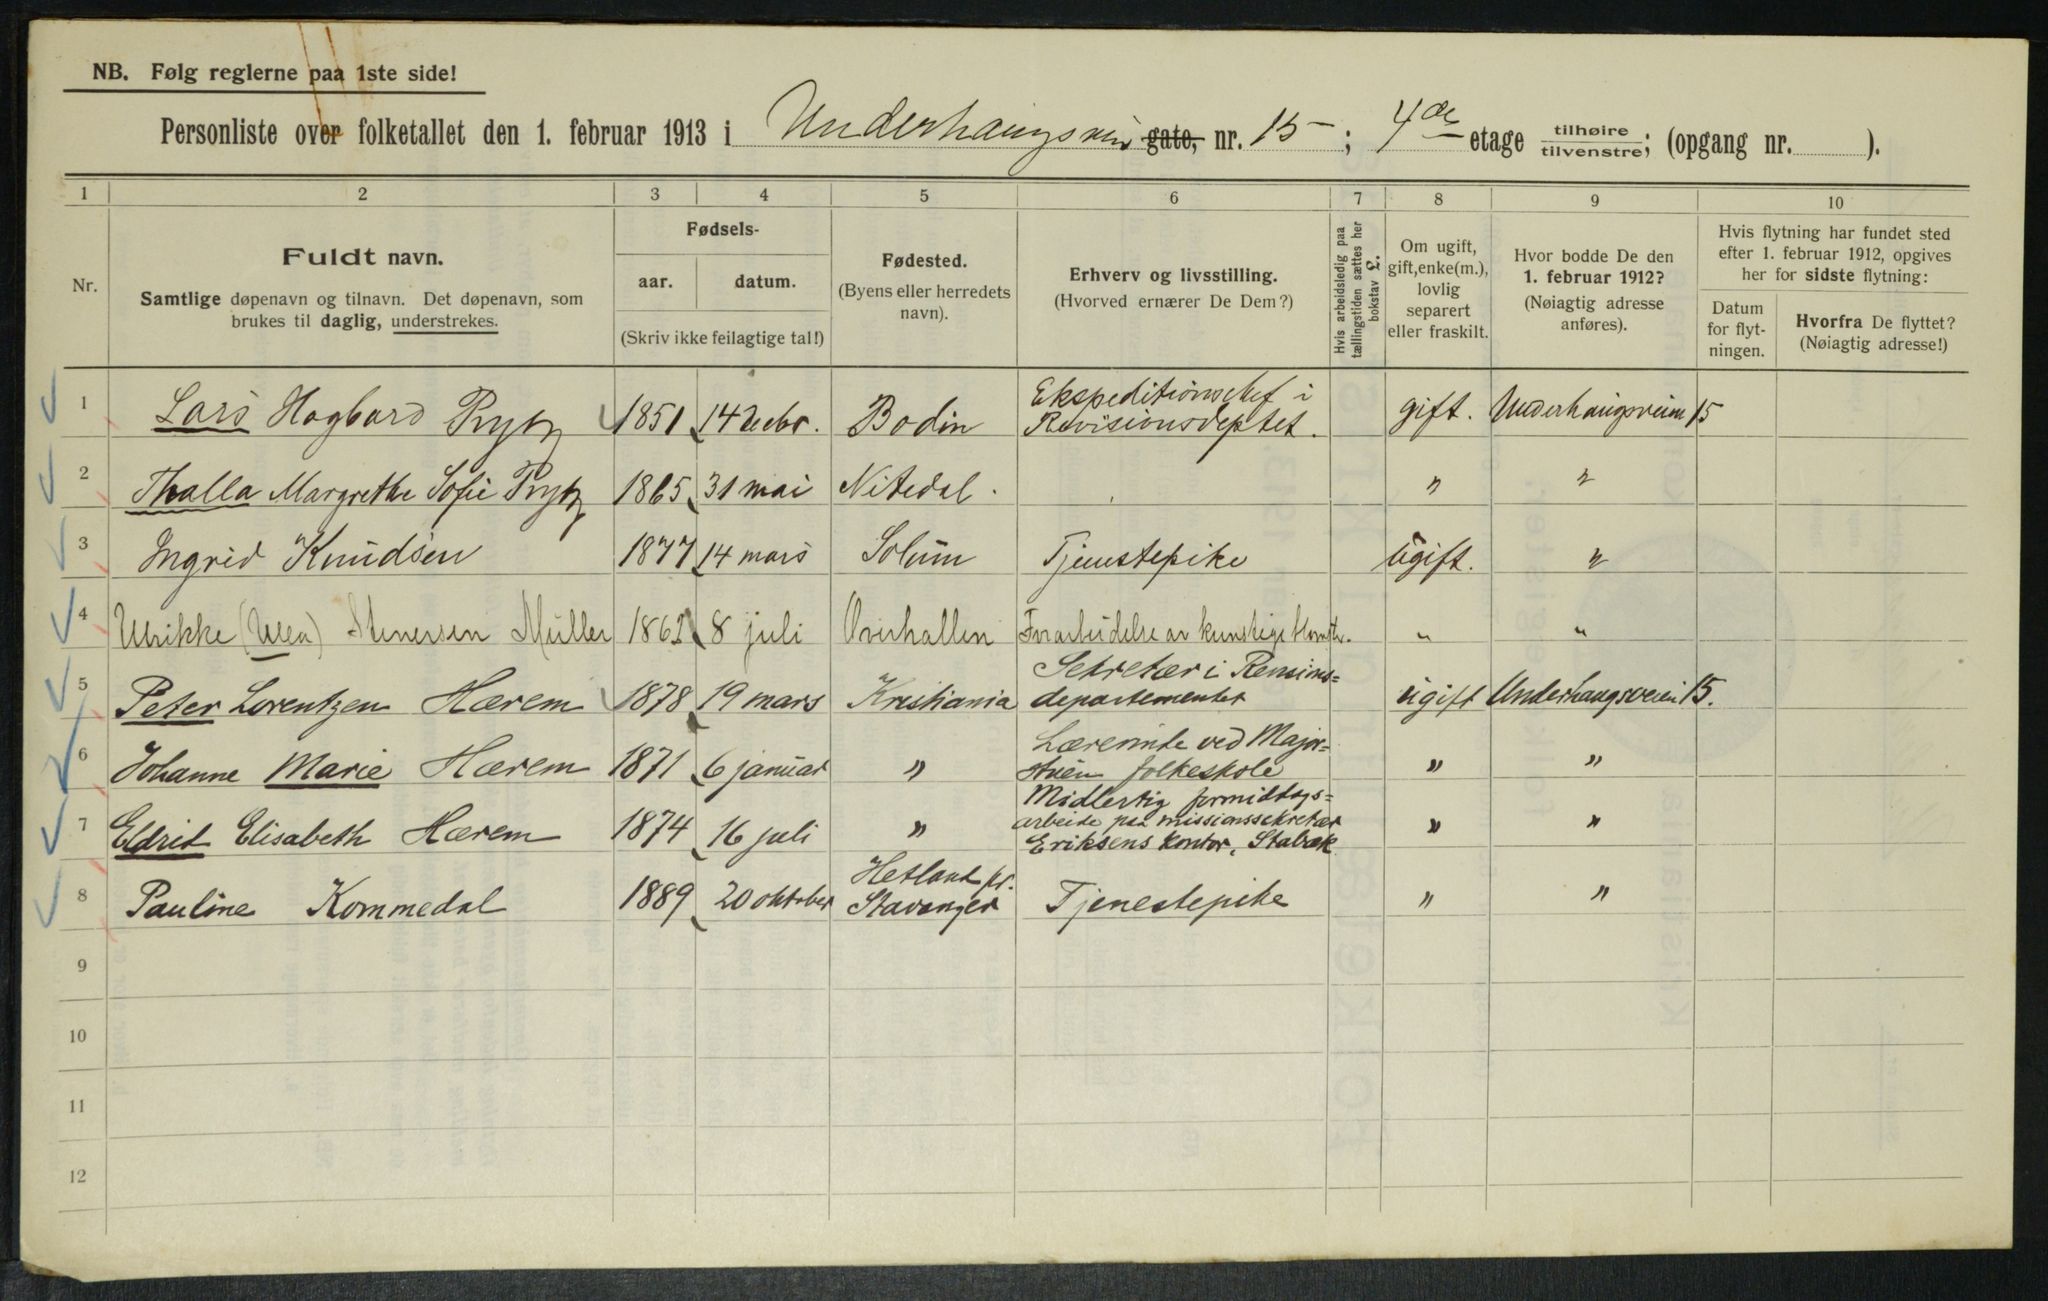 NB. Følg reglerne paa 1ste side!
Personliste over folketallet den 1. februar 1913 i Underhaugsvei gate, nr. 15; 4de etage tilhøire tilvenstre; (opgang nr. ).
1 2 3 4 5 6 7 8 9 10
Nr.
Fuldt navn.
Samtlige døpenavn og tilnavn. Det døpenavn, som
brukes til daglig, understrekes.
Fødsels-
aar. datum.
(Skriv ikke feilagtige tal!)
Fødested.
(Byens eller herredets
navn).
Erhverv og livsstilling.
(Hvorved ernærer De Dem?)
Hvis arbeidsledig paa
tællingstiden sættes her
bokstav L.
Om ugift,
gift, enke(m.),
lovlig
separert
eller fraskilt.
Hvor bodde De den
1. februar 1912?
(Nøiagtig adresse
anføres).
Hvis flytning har fundet sted
efter 1. februar 1912, opgives
her for sidste flytning:
Datum
for flyt-
ningen.
Hvorfra De flyttet?
(Nøiagtig adresse!)
1 Lars Hagbard Prytz 1851 14 decbr. Bodin Ekspeditionschef i
Revisionsdeptet. gift. Underhaugsveien 15
2 Thalla Margrethe Sofie Prytz 1865 31 mai Nitedal. " "
3 Ingrid Knudsen 1877 14 mars Solum Tjenestepike ugift. "
4 Ulrikke (Ulla) Stenersen Müller 1862 8 juli Overhallen Forarbeidelse av kunstige blomstr. " "
5 Peter Lorentzen Hærem 1878 19 mars Kristiania Sekretær i Revisions=
departementet ugift Underhaugsveien 15.
6 Johanne Marie Hærem 1871 6 januar " Lærerinde ved Major=
stuen folkeskole " "
7 Eldrid Elisabeth Hærem 1874 16 juli " Midlertig formiddags=
arbeide paa missionssekretær
Eriksens kontor, Stabæk " "
8 Pauline Kommedal 1889 20 oktober Hetland pr.
Stavanger Tjenestepike " "
9
10
11
12